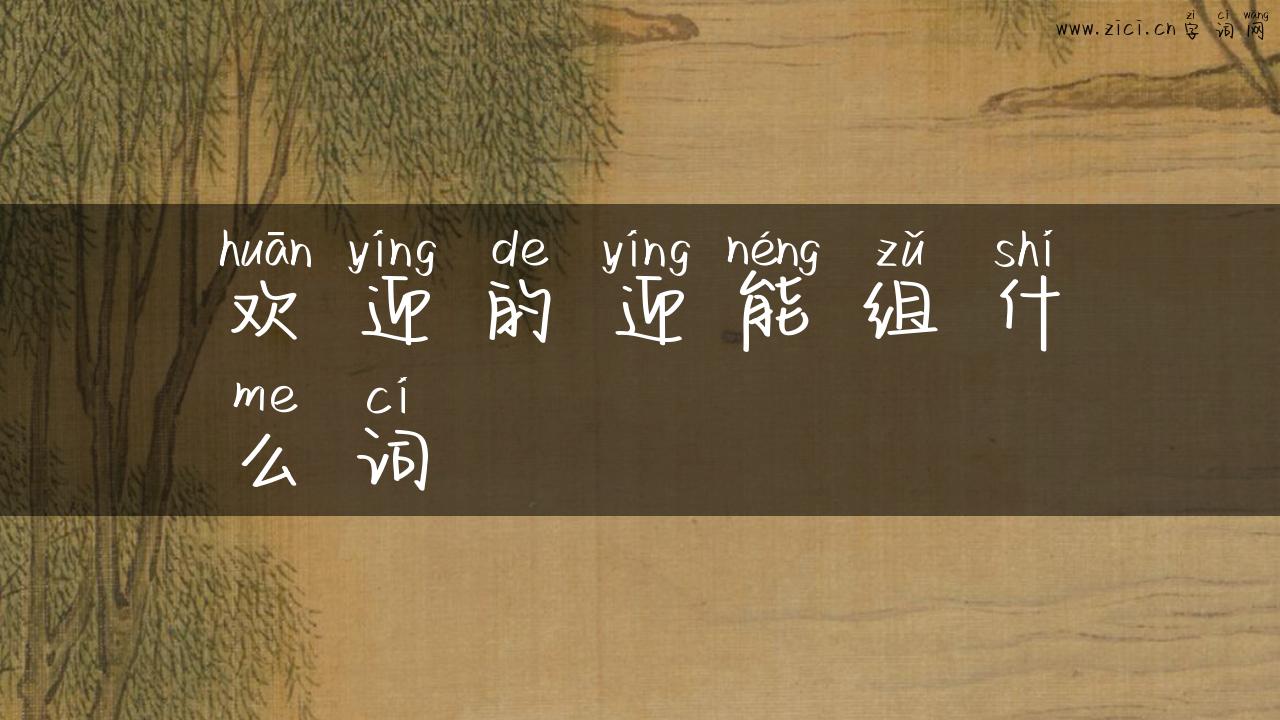 zì cí wǎng
www.zici.cn 字词网
huān yíng de yíng néng zǔ shí
欢迎的迎能组什
me cí
么词